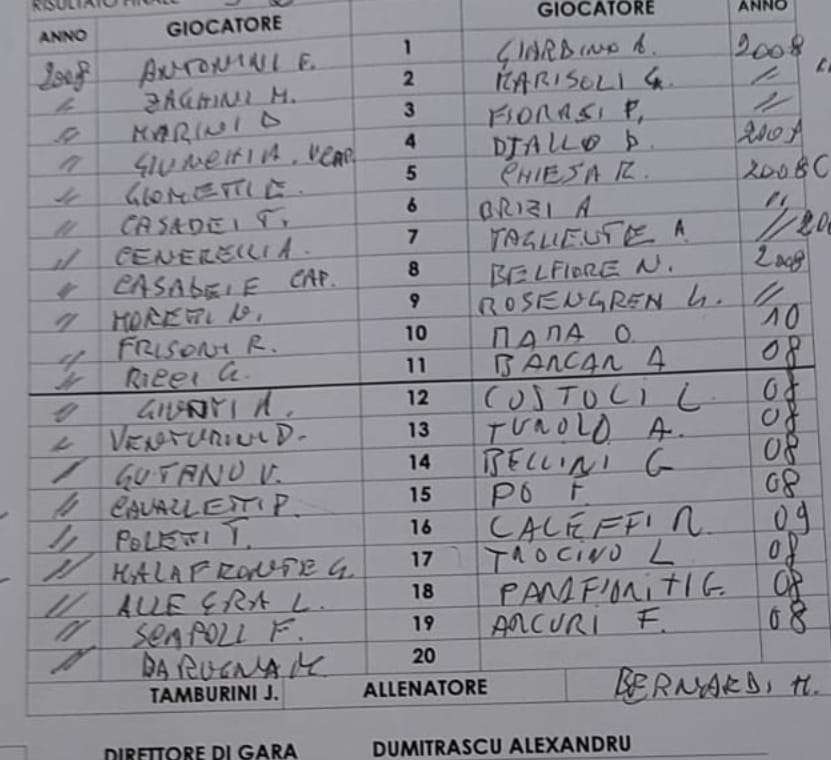 RISULTATO FINALE
ANNO GIOCATORE GIOCATORE ANNO
2008 ANTONINI E. 1 GIARDINO A. 2008
〃 ZAGHINI M. 2 MARISOLI G. 〃
〃 MARINI D 3 FIORASI P. 〃
〃 A. VCAP. 4 DIALLO D. 200
〃 GIOMETTI E. 5 CHIESA R. 2008 C
〃 CASADEI T. 6 BRIZI A 〃
〃 CENERELLI A. 7 TAGLIENTE A. 〃
〃 CASADEI E CAP. 8 BELFIORE N. 2008
〃 MORETTI N. 9 ROSENGREN G. 〃
〃 FRISONI R. 10 ПАПА O. 10
〃 RICCI G. 11 BANCAR A 08
〃 GIUNTI A. 12 COSTOLI L. 08
〃 VENTURINI D. 13 TUROLO A. 08
〃 GUTANU V. 14 BELLINI G 08
〃 CAVALLETTI P. 15 PO F. 08
〃 POLETTI T. 16 CALEFFI R. 09
〃 MALAFRONTE G. 17 TROCINO L 08
〃 ALLEGRA L. 18 PANIFIORITI G. 08
〃 SEMPOLI F. 19 ARCURI F. 08
〃 DARUGNA M. 20
TAMBURINI J. ALLENATORE BERNARDI M.
DIRETTORE DI GARA DUMITRASCU ALEXANDRU